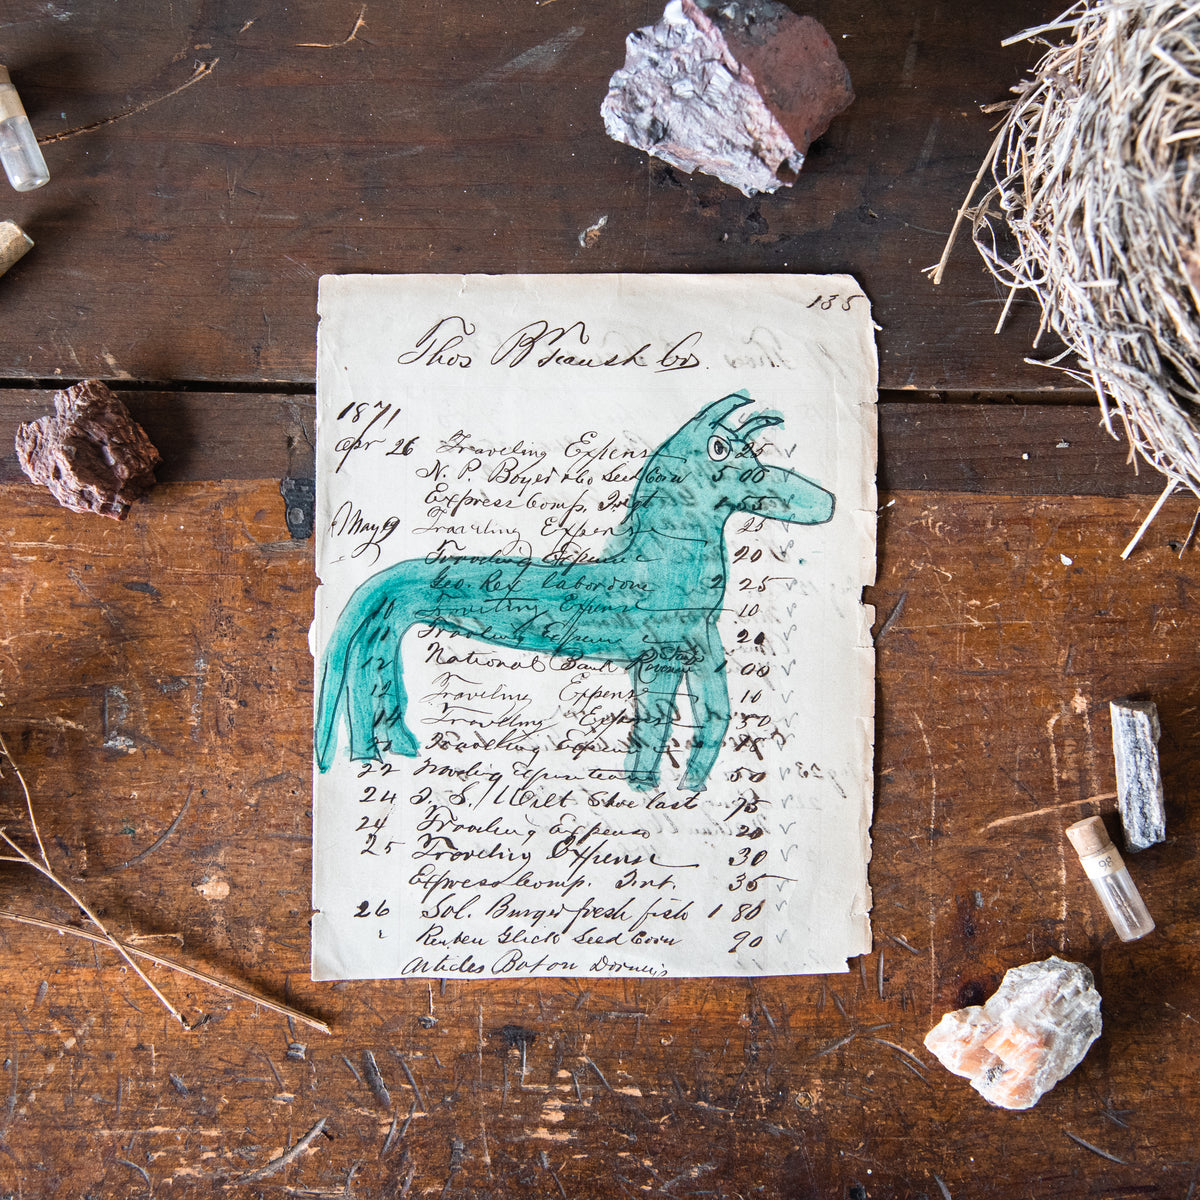 135
Thos
1871
Apr 26 Traveling Expens 25
N. P. Boyer & Co Seed Corn 5 00
Express Comp. Frgt 1 55
May 9 Traveling Expense 25
Traveling Expense 20
Geo. Rex labor done 2 25
10 Traveling Expense 10
11 Traveling Expense 20
12 National Bank Revenue 1 00
12 Traveling Expense 10
14 Traveling Expense
20 Traveling Expense
22 Traveling Expense 50
24 Shoe last 75
24 Traveling Expense 20
25 Traveling Expense 30
Express Comp. Frt. 35
26 Sol. Burger fresh fish 1 80
" Reuben Glick Seed Corn 90
Articles